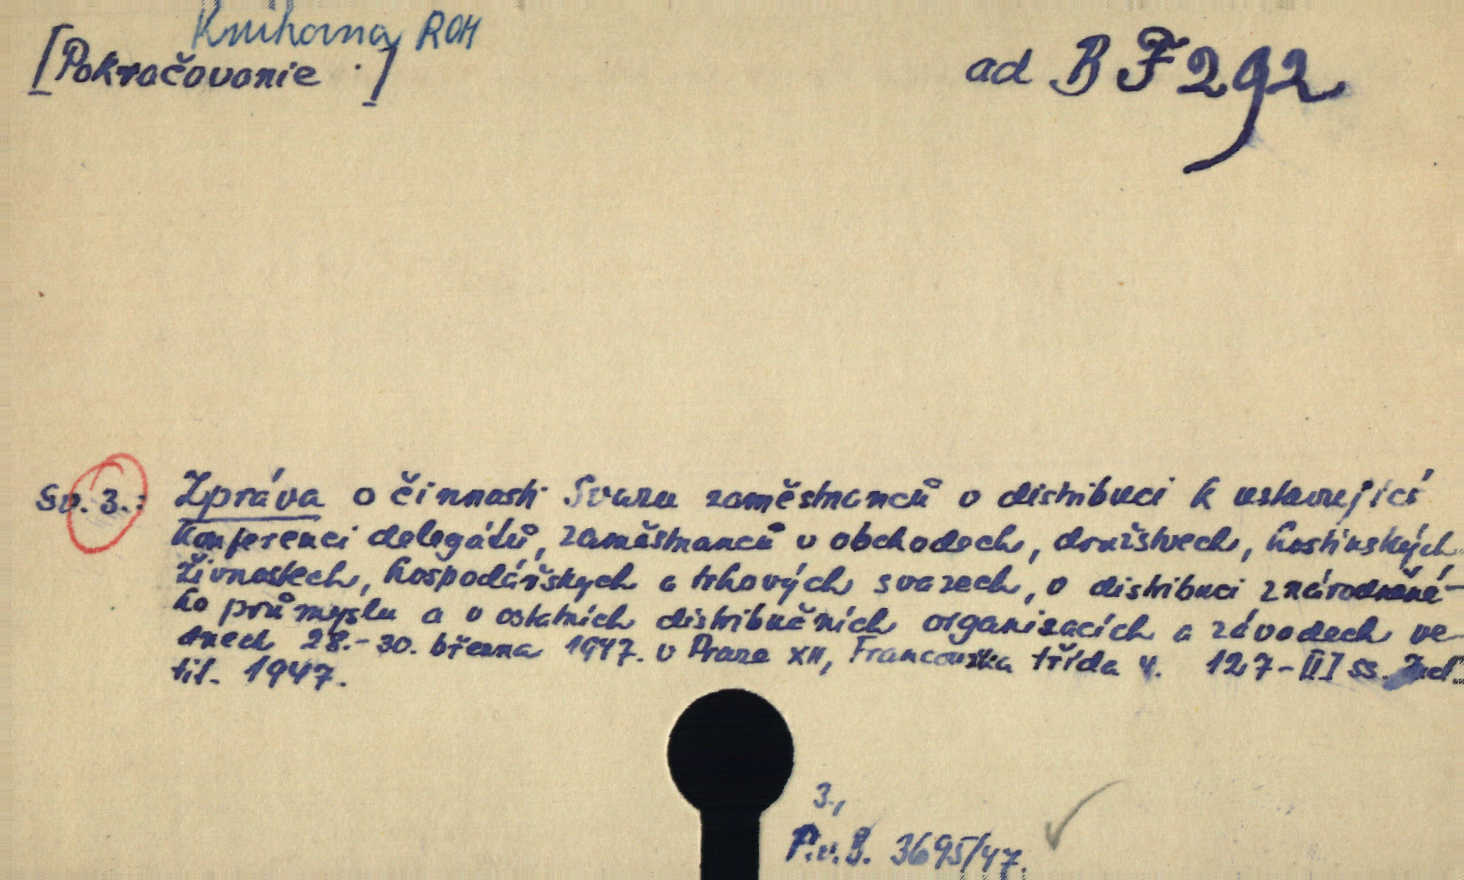 Knihovna ROH
[Pokračovanie .]
ad BF 292
Sv. 3.: Zpráva o činnosti Svazu zaměstnanců v distribuci k ustavující
konferenci delegátů, zaměstnanců v obchodech, družstvech, hostinských
živnostech, hospodářských a trhových svazech, v distribuci znárodněné-
ho průmyslu a v ostatních distribučních organisacích a závodech ve
dnech 28.-30. března 1947. v Praze XII, Francouzska třída 4. 127-III ss.
til. 1947.
3.,
P.v.B. 3695/47.